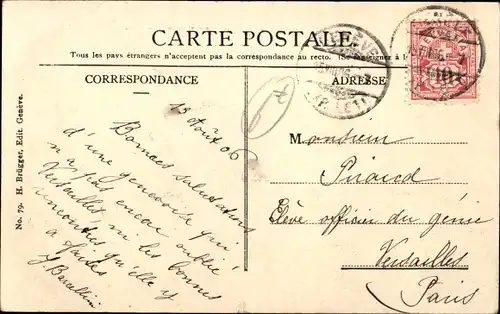 CARTE POSTALE.
Tous les pays étrangers n'acceptent pas la correspondance au recto. (Se renseigner à l
CORRESPONDANCE
ADRESSE
No. 79. H. Brügger, Edit. Genève.
13 Août 06
Bonnes salutations
d'une genevoise qui
n'a pas encore oublié
Versailles ni les bonnes
rencontres qu'elle y
a faites
J. Barcellini
Monsieur
Piraud
Elève officier du génie
Versailles
Paris